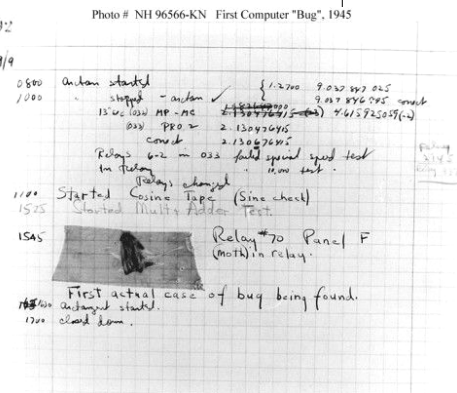 Photo # NH 96566-KN First Computer "Bug", 1945
92
9/9
0800 antan started
1000 " stopped - antan ✓ { 1.2700 9.037 847 025
9.037 846 995 correct
13"UC (032) MP - MC 2.130476415 4.615925059(-2)
(033) PRO 2 2.130476415
correct 2.130676415
Relays 6-2 in 033 failed special speed test
In Relay " 10,000 test.
Relays changed
1100 Started Cosine Tape (Sine check)
1525 Started Mult+Adder Test.
1545 Relay #70 Panel F
(moth) in relay.
First actual case of bug being found.
antangent started.
1700 closed down.